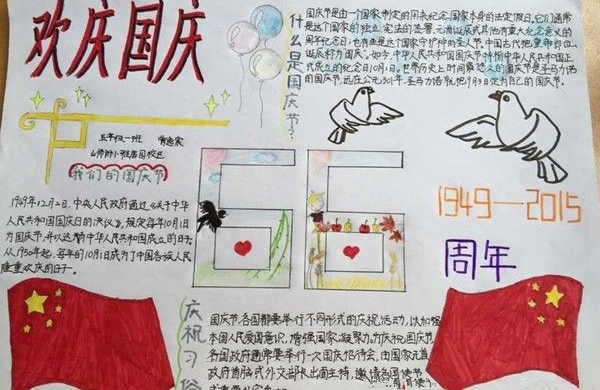 欢庆国庆
五年级一班
我们的国庆节
1949年12月2日,中央人民政府通过《关于中华
人民共和国国庆日的决议》,规定每年10月1日
为国庆节,并以这
中华人民共和国成立的日子。
从1950年起,每年的10月1日成为了中国各族人民
隆重欢庆的日子。
什么是国庆节?
国庆节是由一个国家制定的用来纪念国家本身的法定假日。它们通常
是这个国家的独立、宪法的签署、元首诞辰或其他有重大纪念意义的
周年纪念日;也有些是这个国家守护神的圣人节。中国古代把皇帝即位、
诞辰称为"国庆"。如今,中华人民共和国国庆节特指中华人民共和国正
式成立的纪念日10月1日。世界历史上时间最悠久的国庆节是圣马力诺
的国庆节,远在公元301年,圣马力诺就把9月3日定为自己的国庆节。
66
1949—2015
周年
庆祝习俗
国庆节,各国都要举行不同形式的庆祝活动,以加强
本国人民爱国意识,增强国家凝聚力。为庆祝国庆节
各国政府通常要举行一次国庆招待会,由国家元首
政府首脑或外交部长出面主持,邀请各国使节